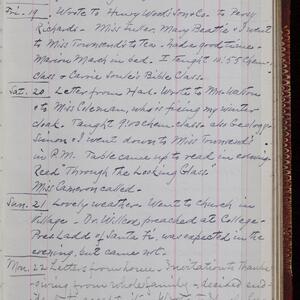 Fri. 19. Wrote to Henry Wood's Son & Co. to Percy
Richards. Miss Tufts, Mary Beattie & I went
to Miss Townsend's to tea. Had a good time.
Marion March in bed. I taught 10:55 Chem.
class & Carrie Soule's Bible Class.
Sat. 20 Letter from Had. Wrote to Mr. Walton
& to Miss Coleman, who is fixing my winter
cloak. Taught 9:00 chem. class. also Geology.
Simon & I went down to Miss Townsend's
in P.M. Table came up to read in evening.
Read "Through the Looking Glass"
Miss Cameron called.
Sun. 21 Lovely weather. Went to church in
Village. Dr. Willcox preached at College.
Pres. Ladd of Santa Fé, was expected in the
evening, but came not.
Mon. 22 Letters from home. Invitation to Thanks-
giving from whole family & decided